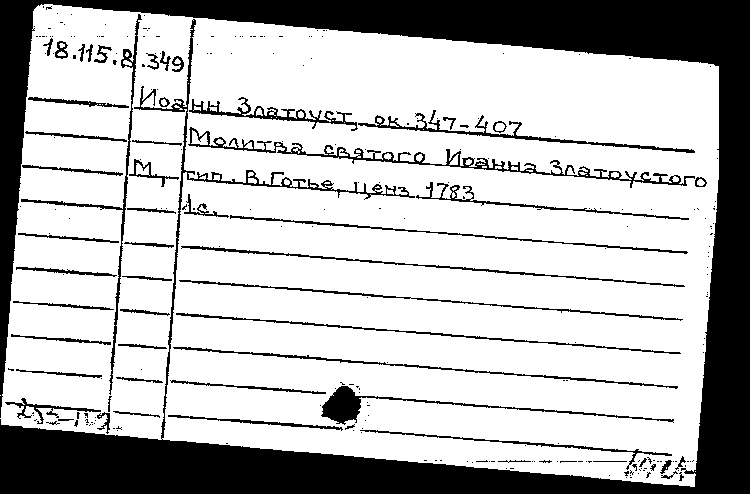 18.115.8.349
Иоанн Златоуст, ок. 347-407
Молитва святого Иоанна Златоустого
М., тип. В. Готье, ценз. 1783
1 с.